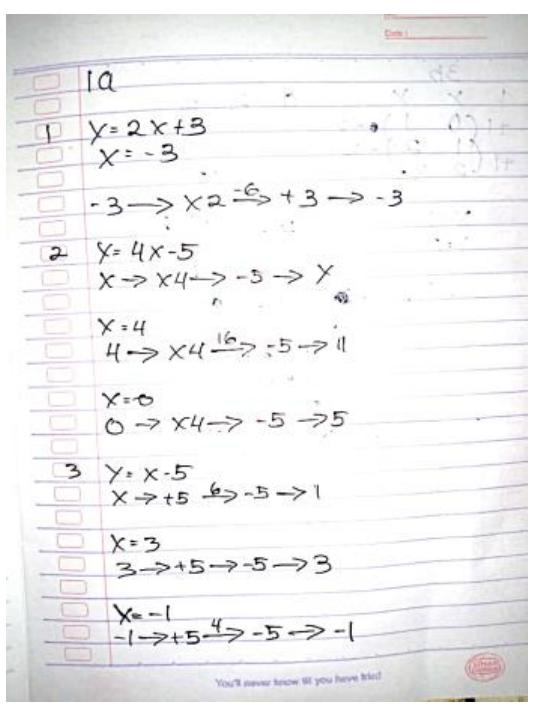 Date :
1a
1 Y = 2x+3
X = -3
-3 → ×2 -6→ +3 → -3
2 Y = 4x-5
X → ×4 → -5 → Y
X = 4
4 → ×4 16→ -5 → 11
X = 0
0 → ×4 → -5 → 5
3 Y = x-5
X → +5 6→ -5 → 1
X = 3
3 → +5 → -5 → 3
X = -1
-1 → +5 4→ -5 → -1
You'll never know till you have tried